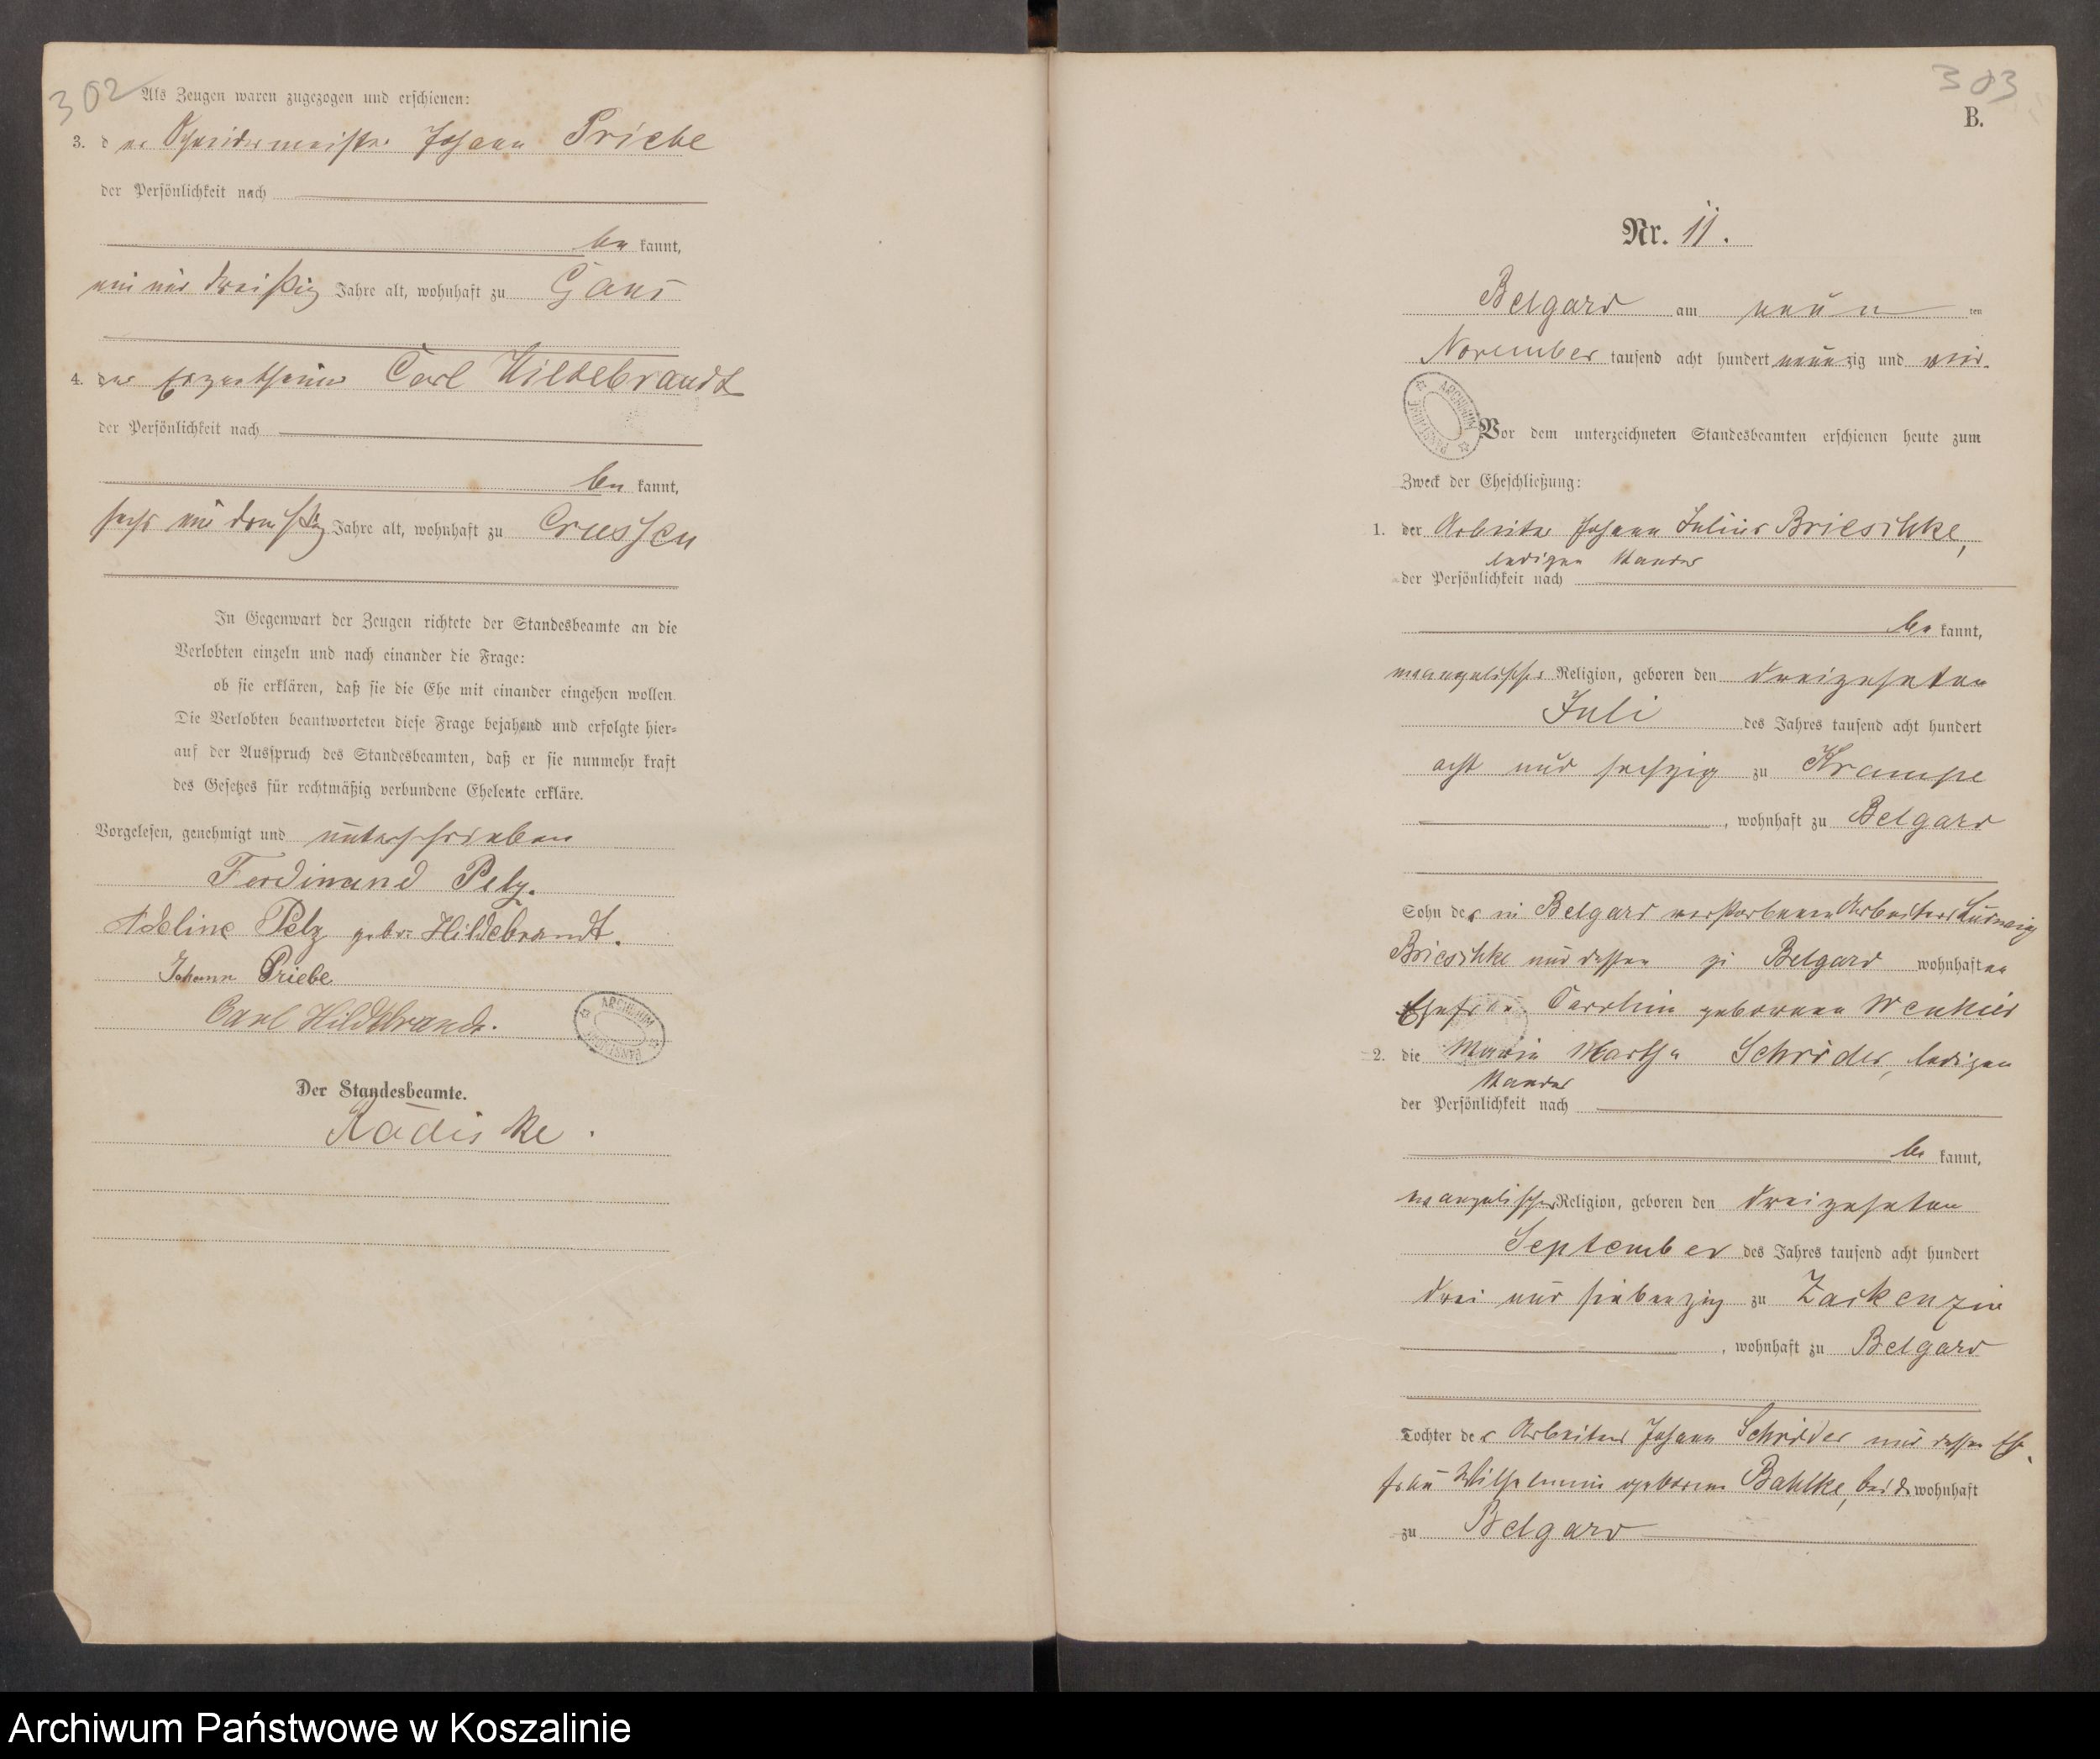 302
Als Zeugen waren zugezogen und erschienen:
3. der Schneidermeister Johann Priebe
der Persönlichkeit nach
be kannt,
ein und dreißig Jahre alt, wohnhaft zu Gans
4. der Carl Hildebrandt
der Persönlichkeit nach
be kannt,
sechs und dreißig Jahre alt, wohnhaft zu Crussen
In Gegenwart der Zeugen richtete der Standesbeamte an die
Verlobten einzeln und nach einander die Frage:
ob sie erklären, daß sie die Ehe mit einander eingehen wollen.
Die Verlobten beantworteten diese Frage bejahend und erfolgte hier-
auf der Ausspruch des Standesbeamten, daß er sie nunmehr kraft
des Gesetzes für rechtmäßig verbundene Eheleute erkläre.
Vorgelesen, genehmigt und unterschrieben
Ferdinand Pelz.
Adeline Pelz geb. Hildebrandt.
Johann Priebe
Carl Hildebrandt.
ARCHIWUM PAŃSTWOWE
Der Standesbeamte.
Radiske.
303
B.
Nr. 11.
Belgard am neun ten
November tausend acht hundert neunzig und vier.
ARCHIWUM PAŃSTWOWE
Vor dem unterzeichneten Standesbeamten erschienen heute zum
Zweck der Eheschließung:
1. der Arbeiter Johann Julius Brieschke,
ledigen Standes
der Persönlichkeit nach
be kannt,
evangelischer Religion, geboren den dreizehnten
Juli des Jahres tausend acht hundert
acht und sechzig zu Krampe
, wohnhaft zu Belgard
Sohn des in Belgard verstorbenen Arbeiters Ludwig
Brieschke und dessen zu Belgard wohnhaften
Ehefrau geborenen
2. die Marie Martha Schröder, ledigen
Standes
der Persönlichkeit nach
be kannt,
evangelischer Religion, geboren den dreizehnten
September des Jahres tausend acht hundert
drei und siebenzig zu Zackenzin
, wohnhaft zu Belgard
Tochter des Arbeiters Johann Schröder und dessen Ehe-
frau Wilhelmine geborene Bahlke, beide wohnhaft
zu Belgard
Archiwum Państwowe w Koszalinie